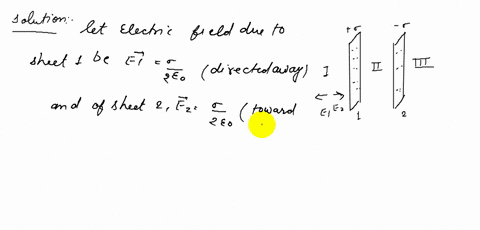 Solution:- let Electric field due to
sheet 1 be E⃗1 = σ/2ε0 (directed away)
and of sheet 2, E⃗2 = σ/2ε0 (toward
+σ -σ
I II III
E1 E2
1 2